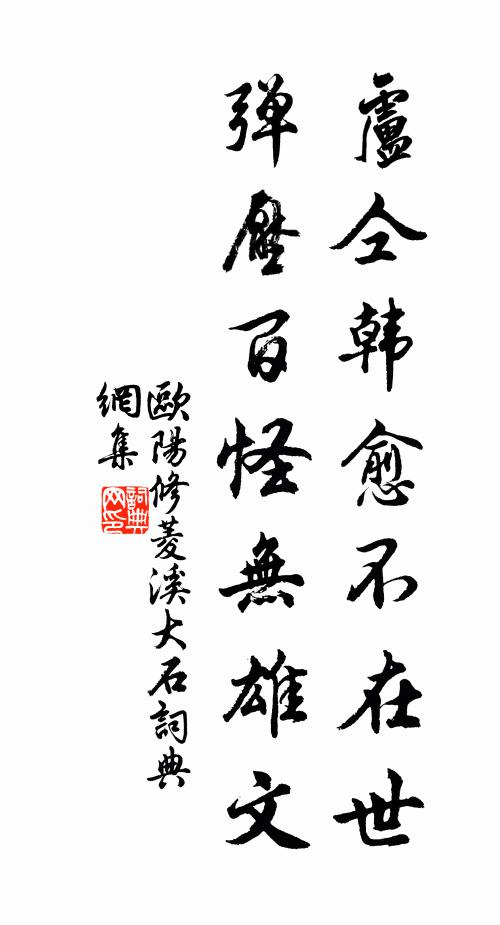 盧仝韓愈不在世
弹壓百怪無雄文
歐陽修菱溪大石詞典
網集
詞典
网印